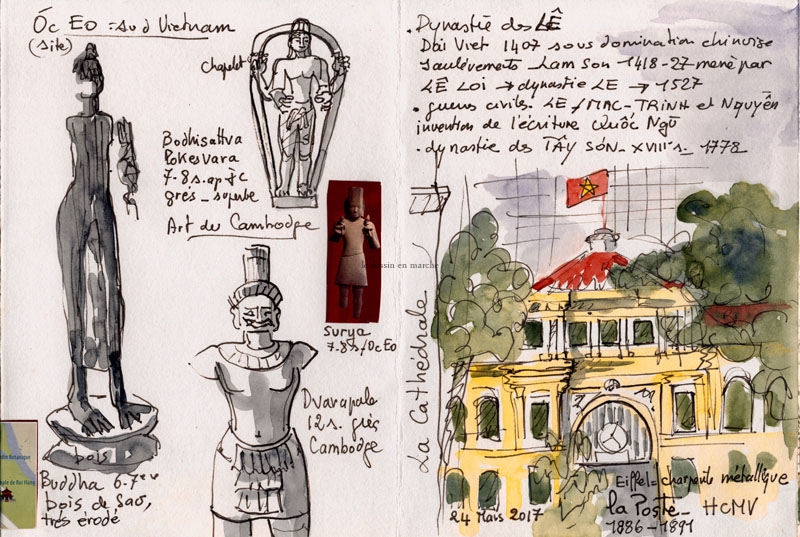 Óc Eo = sud Vietnam
(site)
Chapelet
Bodhisattva
Lokesvara
7-8 s. ap JC
grès - superbe
Art du Cambodge
le dessin en marche
Surya
7-8 s / Oc Eo
Dvarapala
12 s. grès
Cambodge
bois
Buddha 6-7ème
bois de Sao,
très érodé
Jardin Botanique
Temple de Roi Hùng
• Dynastie des LÊ
Dai Viet 1407 sous domination chinoise
soulèvements Lam Son 1418-27 mené par
LÊ LOI → dynastie LE → 1527
• guerres civiles LE / MAC - TRINH et Nguyên
invention de l'écriture Quôc Ngū
• dynastie des TÂY SÓN - XVIII's - 1778
La Cathédrale
Eiffel = charpente métallique
24 Mars 2017
la Poste - HCMV
1886-1891